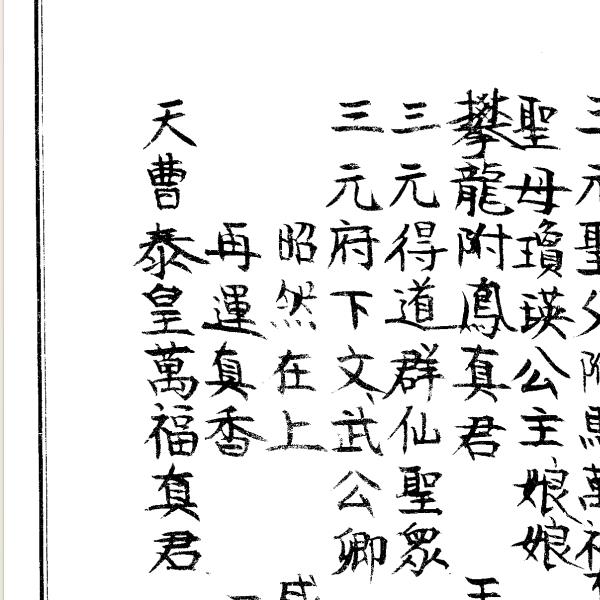 三元聖父附馬萬
聖母瓊瑛公主娘娘
攀龍附鳳真君
三元得道群仙聖眾
三元府下文武公卿
昭然在上
再運真香
天曹泰皇萬福真君